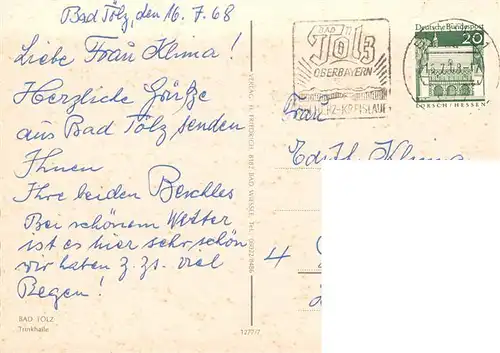 Bad Tölz, den 16.7.68
Liebe Frau Klima!
Herzliche Grüße
aus Bad Tölz senden
Ihnen
Ihre beiden Beschles
Bei schönem Wetter
ist es hier sehr schön
wir haben z. Zt. viel
Regen!
BAD TÖLZ
Trinkhalle
VERLAG: H. FRIEDRICH, 8182 BAD WIESSEE, TEL.
1277/7
BAD TÖLZ
OBERBAYERN
HERZ-KREISLAUF
Deutsche Bundespost
20
LORSCH/HESSEN
Frau
Edith Klima
4